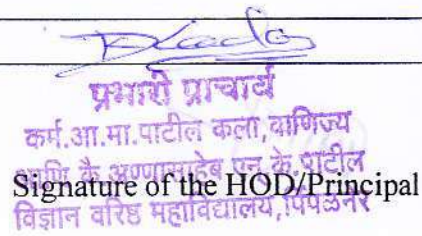 प्रभारी प्राचार्य
कर्म.आ.मा.पाटील कला,वाणिज्य
आणि कै.अण्णासाहेब एन.के.पाटील
Signature of the HOD/Principal
विज्ञान वरिष्ठ महाविद्यालय,पिंपळनेर